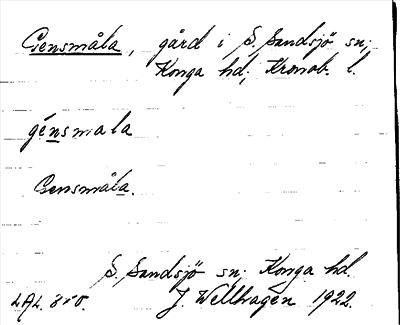 Gensmåla, gård i S. Sandsjö sn;
Konga hd; Kronob. l.
génsmala
Gensmåla.
S. Sandsjö sn; Konga hd.
J. Wellhagen 1922.